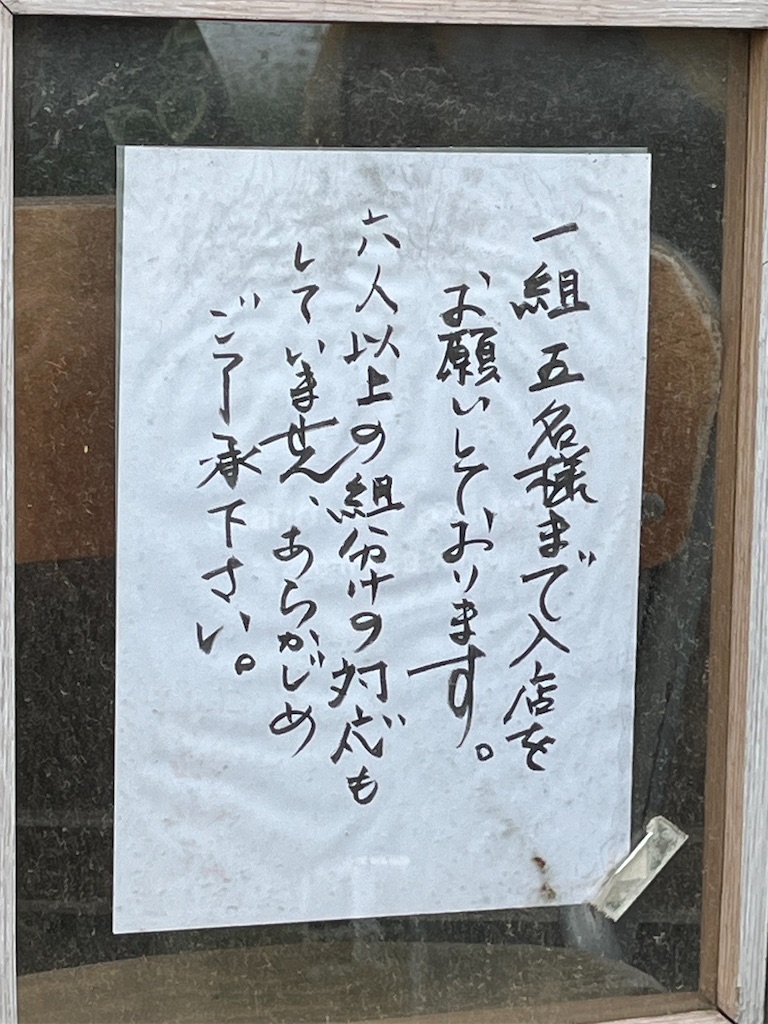 一組五名様まで入店を
お願いしております。
六人以上の組分けの対応も
していません、あらかじめ
ご了承下さい。